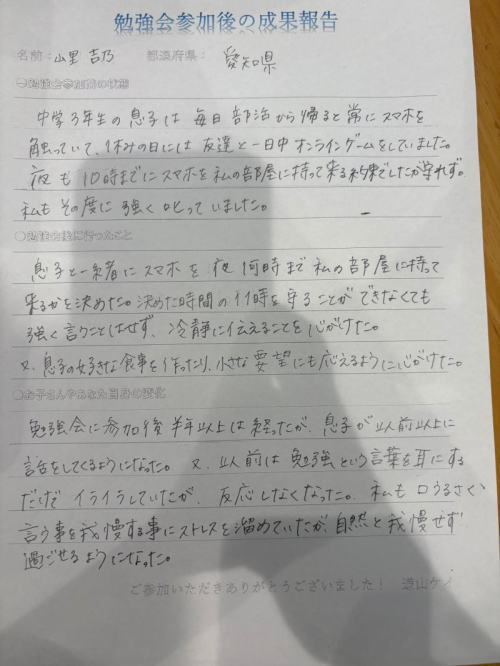 勉強会参加後の成果報告
名前：山里 吉乃 都道府県： 愛知県
○勉強会参加前の状態
中学3年生の息子は毎日部活から帰ると常にスマホを
触っていて、休みの日には友達と一日中オンラインゲームをしていました。
夜も10時までにスマホを私の部屋に持って来る約束でしたが守れず。
私もその度に強く叱っていました。
○勉強会後に行ったこと
息子と一緒にスマホを夜何時まで私の部屋に持って
来るかを決めた。決めた時間の11時を守ることができなくても
強く言うことはせず、冷静に伝えることを心がけた。
又、息子の好きな食事を作ったり、小さな要望にも応えるように心がけた。
○お子さんやあなた自身の変化
勉強会に参加後半年以上は経ったが、息子が以前以上に
話をしてくるようになった。又、以前は勉強という言葉を耳にする
だけでイライラしていたが、反応しなくなった。私も口うるさく
言う事を我慢する事にストレスを溜めていたが、自然と我慢せず
過ごせるようになった。
ご参加いただきありがとうございました！ 道山ケイ